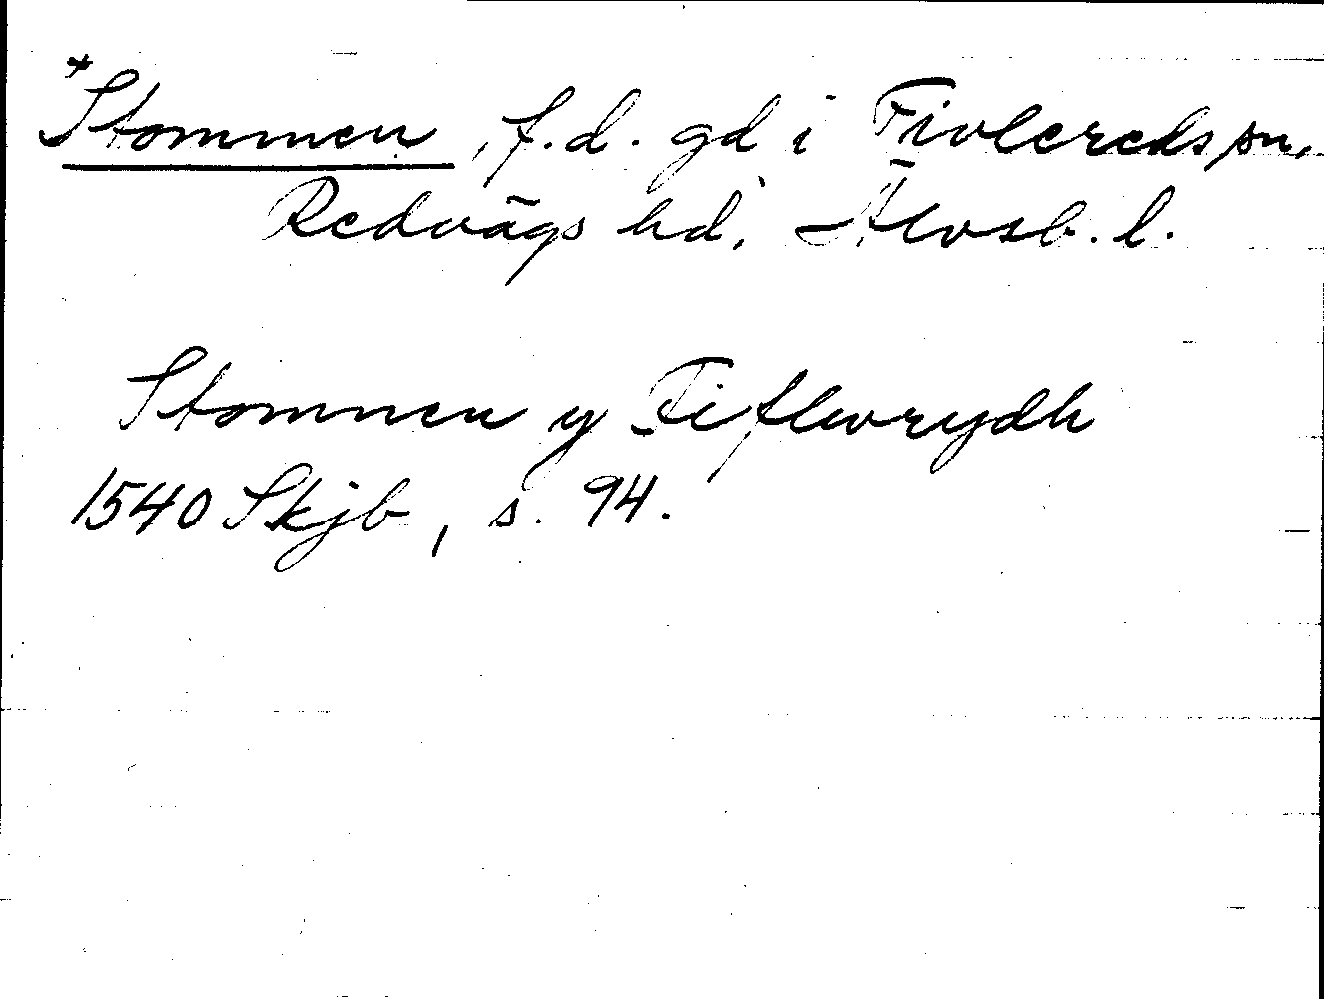 *Stommen, f.d. gd i Fivlereds sn,
Redvägs hd, Älvsb. l.
Stomnen y Fiflwrydh
1540 Skjb, s. 94.